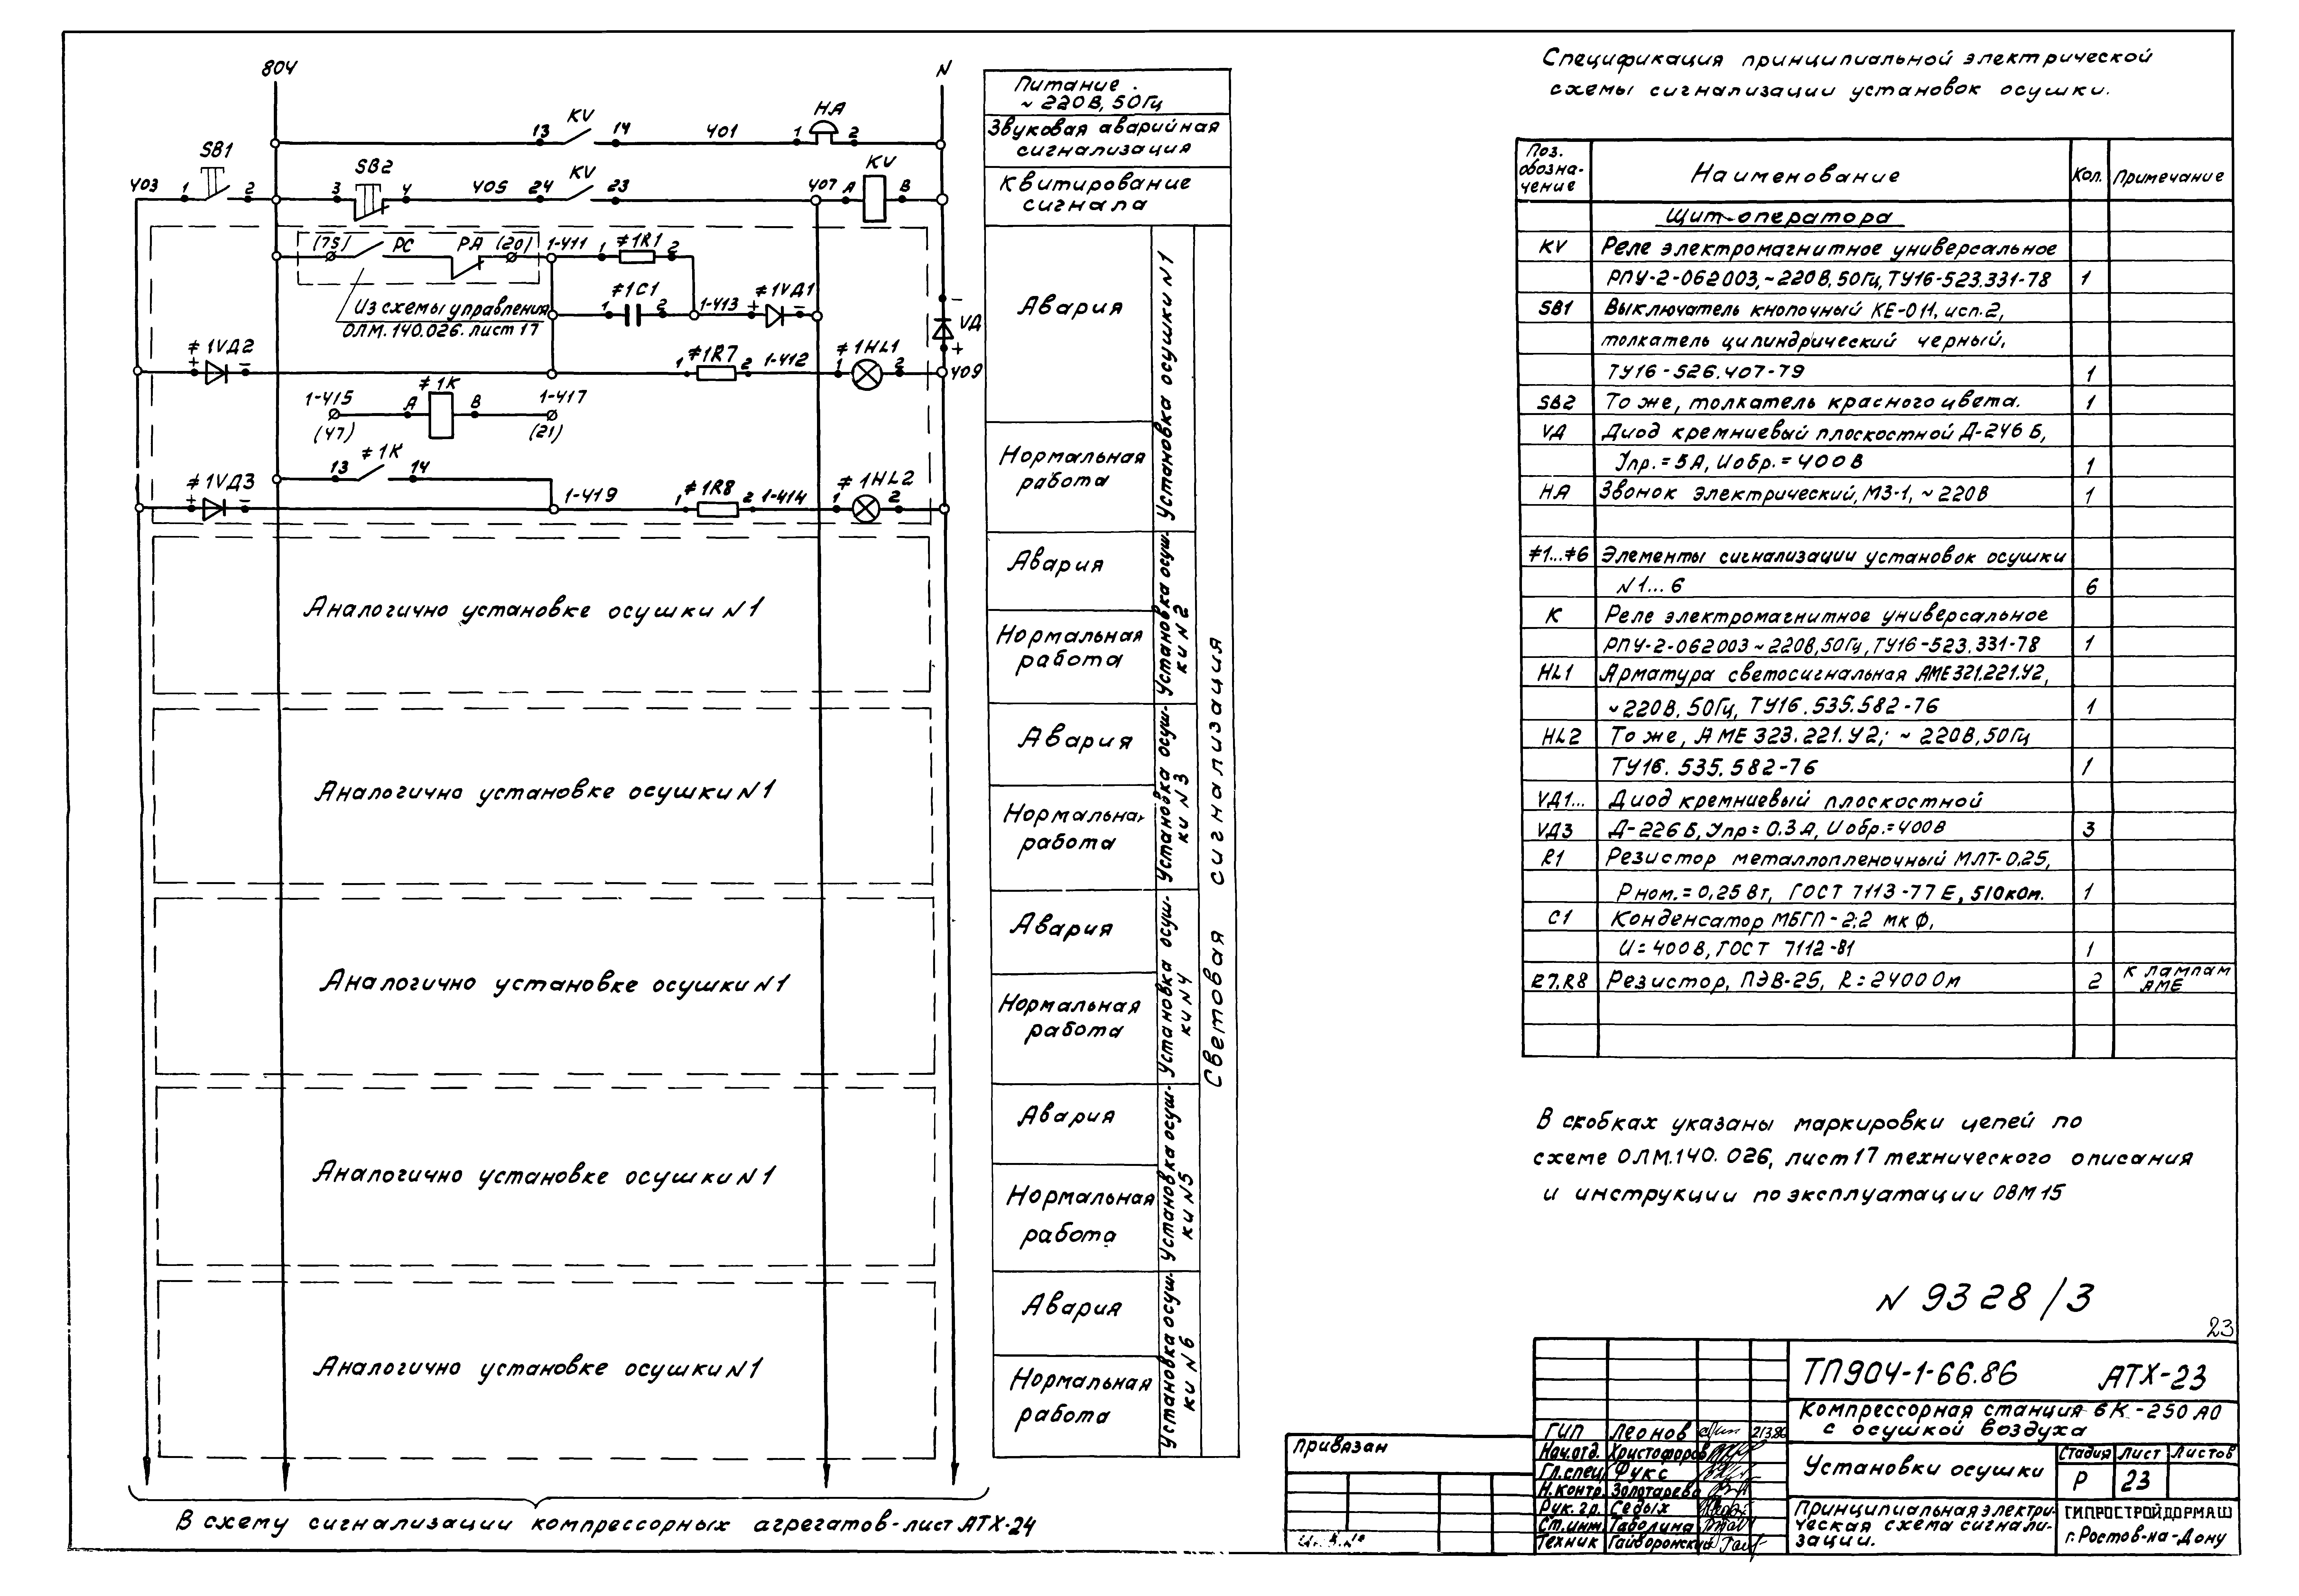 804
N
SB1
403
1
2
SB2
3
4
405
24
KV
23
407
A
KV
B
13
KV
14
401
1
НА
2
(75)
РС
РА
(20)
1-411
1
≠1R1
2
≠1С1
1
2
1-413
+
≠1VД1
-
Из схемы управления
ОЛМ.140.026. лист 17
-
VД
+
≠1VД2
+
-
1
≠1R7
2
1-412
≠1HL1
1
2
409
1-415
(47)
А
≠1К
В
1-417
(21)
13
≠1К
14
≠1VД3
+
-
1-419
1
≠1R8
2
1-414
≠1HL2
1
2
Аналогично установке осушки N1
Аналогично установке осушки N1
Аналогично установке осушки N1
Аналогично установке осушки N1
Аналогично установке осушки N1
В схему сигнализации компрессорных агрегатов-лист АТХ-24
Питание
~ 220В, 50Гц
Звуковая аварийная
сигнализация
Квитирование
сигнала
Авария
Нормальная
работа
Установка осушки N1
Авария
Нормальная
работа
Установка осуш-
ки N2
Авария
Нормальная
работа
Установка осуш-
ки N3
Авария
Нормальная
работа
Установка осуш-
ки N4
Авария
Нормальная
работа
Установка осуш-
ки N5
Авария
Нормальная
работа
Установка осуш-
ки N6
Световая сигнализация
Спецификация принципиальной электрической
схемы сигнализации установок осушки.
Поз. обозна-чение Наименование Кол. Примечание
Щит оператора
KV Реле электромагнитное универсальное
РПУ-2-062003, ~220В, 50Гц, ТУ16-523.331-78 1
SB1 Выключатель кнопочный КЕ-011, исп.2,
толкатель цилиндрический черный,
ТУ16-526.407-79 1
SB2 То же, толкатель красного цвета. 1
VД Диод кремниевый плоскостной Д-246 Б,
Iпр.=5А, Uобр.=400В 1
НА Звонок электрический, МЗ-1, ~220В 1
≠1...≠6 Элементы сигнализации установок осушки
N1...6 6
К Реле электромагнитное универсальное
РПУ-2-062003 ~220В, 50Гц, ТУ16-523.331-78 1
HL1 Арматура светосигнальная АМЕ321.221.У2,
~220В, 50Гц, ТУ16.535.582-76 1
HL2 То же, АМЕ 323.221.У2; ~ 220В, 50Гц
ТУ16.535.582-76 1
VД1... Диод кремниевый плоскостной
VД3 Д-226Б, Iпр=0.3А, Uобр.=400В 3
R1 Резистор металлопленочный МЛТ-0.25,
Рном.=0,25Вт, ГОСТ 7113-77Е, 510кОм. 1
С1 Конденсатор МБГП-2;2 мкФ,
U=400В, ГОСТ 7112-81 1
R7,R8 Резистор, ПЭВ-25, R=2400 Ом 2 к лампам АМЕ
В скобках указаны маркировки цепей по
схеме ОЛМ.140.026, лист 17 технического описания
и инструкции по эксплуатации 08М15
N 9328/3
23
ТП904-1-66.86 АТХ-23
Компрессорная станция 6К-250А0
с осушкой воздуха
Установки осушки
Стадия Лист Листов
Р 23
Принципиальная электри-
ческая схема сигнали-
зации.
ГИПРОСТРОЙДОРМАШ
г.Ростов-на-Дону
ГИП Леонов 21.3.86
Нач.отд. Христофоров
Гл.спец. Фукс
Н.контр. Золотарева
Рук.гр. Седых
Ст.инж. Таволина
Техник Гайворонский
Привязан